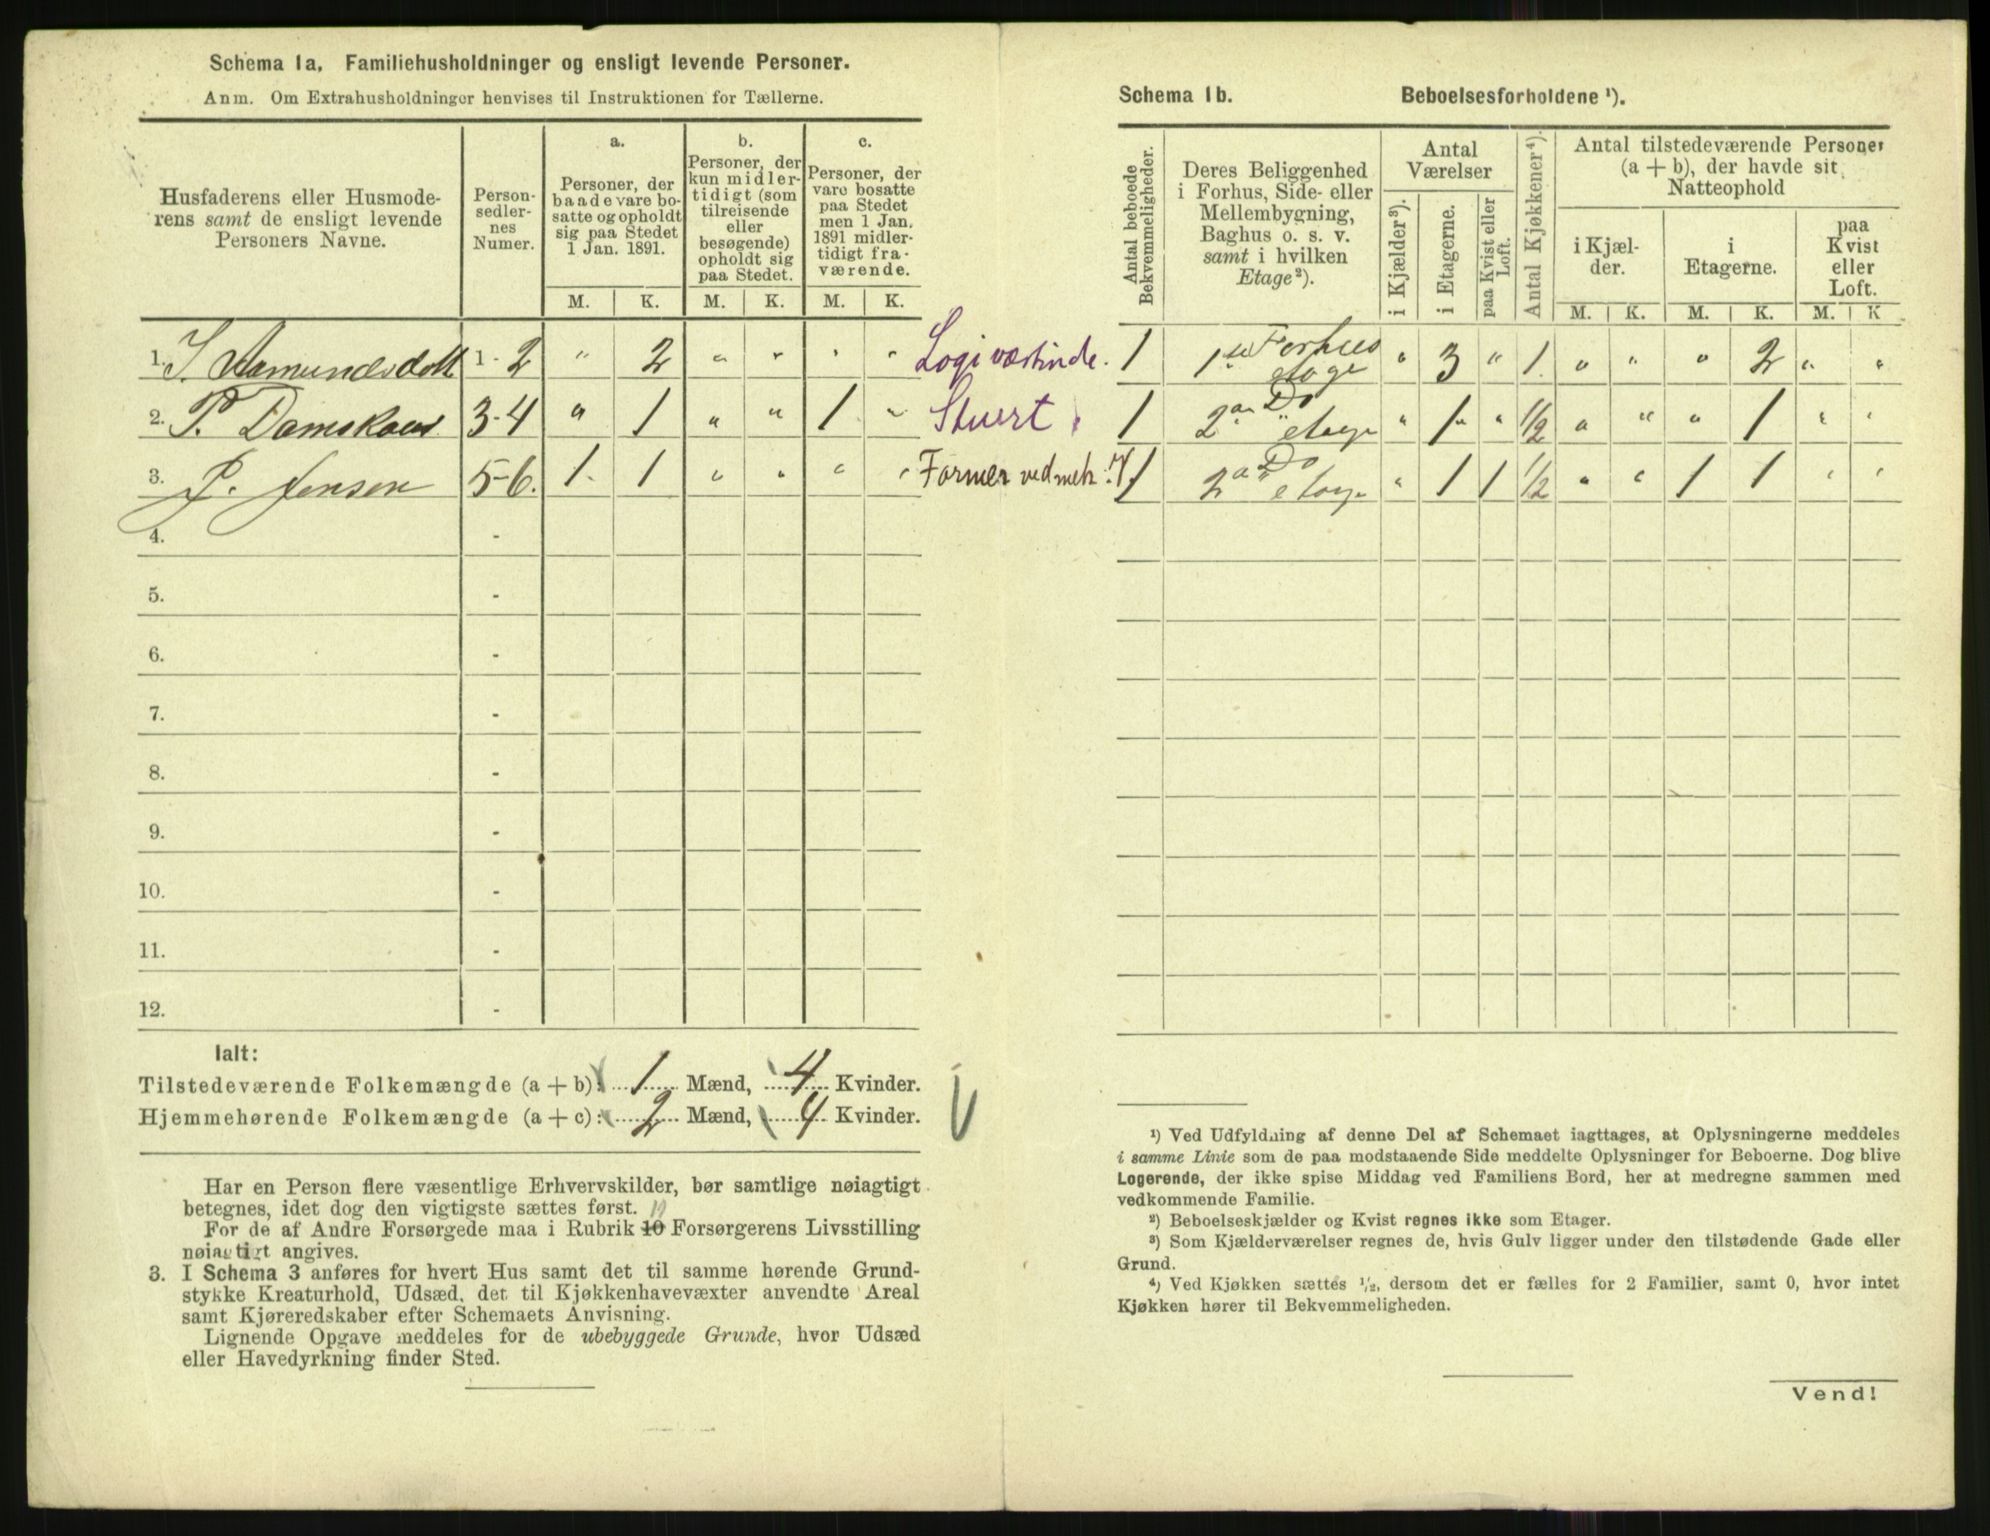 Schema 1a. Familiehusholdninger og ensligt levende Personer.
Anm. Om Extrahusholdninger henvises til Instruktionen for Tællerne.
Husfaderens eller Husmode-
rens samt de ensligt levende
Personers Navne.
Person-
sedler-
nes
Numer.
a.
Personer, der
baade vare bo-
satte og opholdt
sig paa Stedet
1 Jan. 1891.
b.
Personer, der
kun midler-
tidigt (som
tilreisende
eller
besøgende)
opholdt sig
paa Stedet.
c.
Personer, der
vare bosatte
paa Stedet
men 1 Jan.
1891 midler-
tidigt fra-
værende.
M. K. M. K. M. K.
1. I. Aamundsdott 1 - 2 " 2 " " " " Logiværtinde.
2. P. Damskaus 3-4 " 1 " " 1 " Stuert
3. P. Jensen 5-6. 1 1 " " " " Former ved mek. V.
4. -
5. -
6. -
7. -
8. -
9. -
10. -
11. -
12. -
Ialt:
Tilstedeværende Folkemængde (a + b): 1 Mænd, 4 Kvinder.
Hjemmehørende Folkemængde (a + c): 2 Mænd, 4 Kvinder.
Har en Person flere væsentlige Erhvervskilder, bør samtlige nøiagtigt
betegnes, idet dog den vigtigste sættes først.
For de af Andre Forsørgede maa i Rubrik 10 Forsørgerens Livsstilling
nøiagtigt angives.
3. I Schema 3 anføres for hvert Hus samt det til samme hørende Grund-
stykke Kreaturhold, Udsæd, det til Kjøkkenhavevæxter anvendte Areal
samt Kjøreredskaber efter Schemaets Anvisning.
Lignende Opgave meddeles for de ubebyggede Grunde, hvor Udsæd
eller Havedyrkning finder Sted.
Schema 1b. Beboelsesforholdene ¹).
Antal beboede
Bekvemmeligheder.
Deres Beliggenhed
i Forhus, Side- eller
Mellembygning,
Baghus o. s. v.
samt i hvilken
Etage ²).
Antal
Værelser
i Kjælder ³).
i Etagerne.
paa Kvist eller
Loft.
Antal Kjøkkener ⁴).
Antal tilstedeværende Personer
(a + b), der havde sit
Natteophold
i Kjæl-
der.
i
Etagerne.
paa
Kvist
eller
Loft.
M. K. M. K. M. K
1 1ste Forhus etage " 3 " 1. " " " 2 " "
1 2den Do etage " 1 " 1/2 " " " 1 " "
1 2den Do etage " 1 1 1/2 " " 1 1 " "
¹) Ved Udfyldning af denne Del af Schemaet iagttages, at Oplysningerne meddeles
i samme Linie som de paa modstaaende Side meddelte Oplysninger for Beboerne. Dog blive
Logerende, der ikke spise Middag ved Familiens Bord, her at medregne sammen med
vedkommende Familie.
²) Beboelseskjælder og Kvist regnes ikke som Etager.
³) Som Kjælderværelser regnes de, hvis Gulv ligger under den tilstødende Gade eller
Grund.
⁴) Ved Kjøkken sættes ¹/₂, dersom det er fælles for 2 Familier, samt 0, hvor intet
Kjøkken hører til Bekvemmeligheden.
Vend!